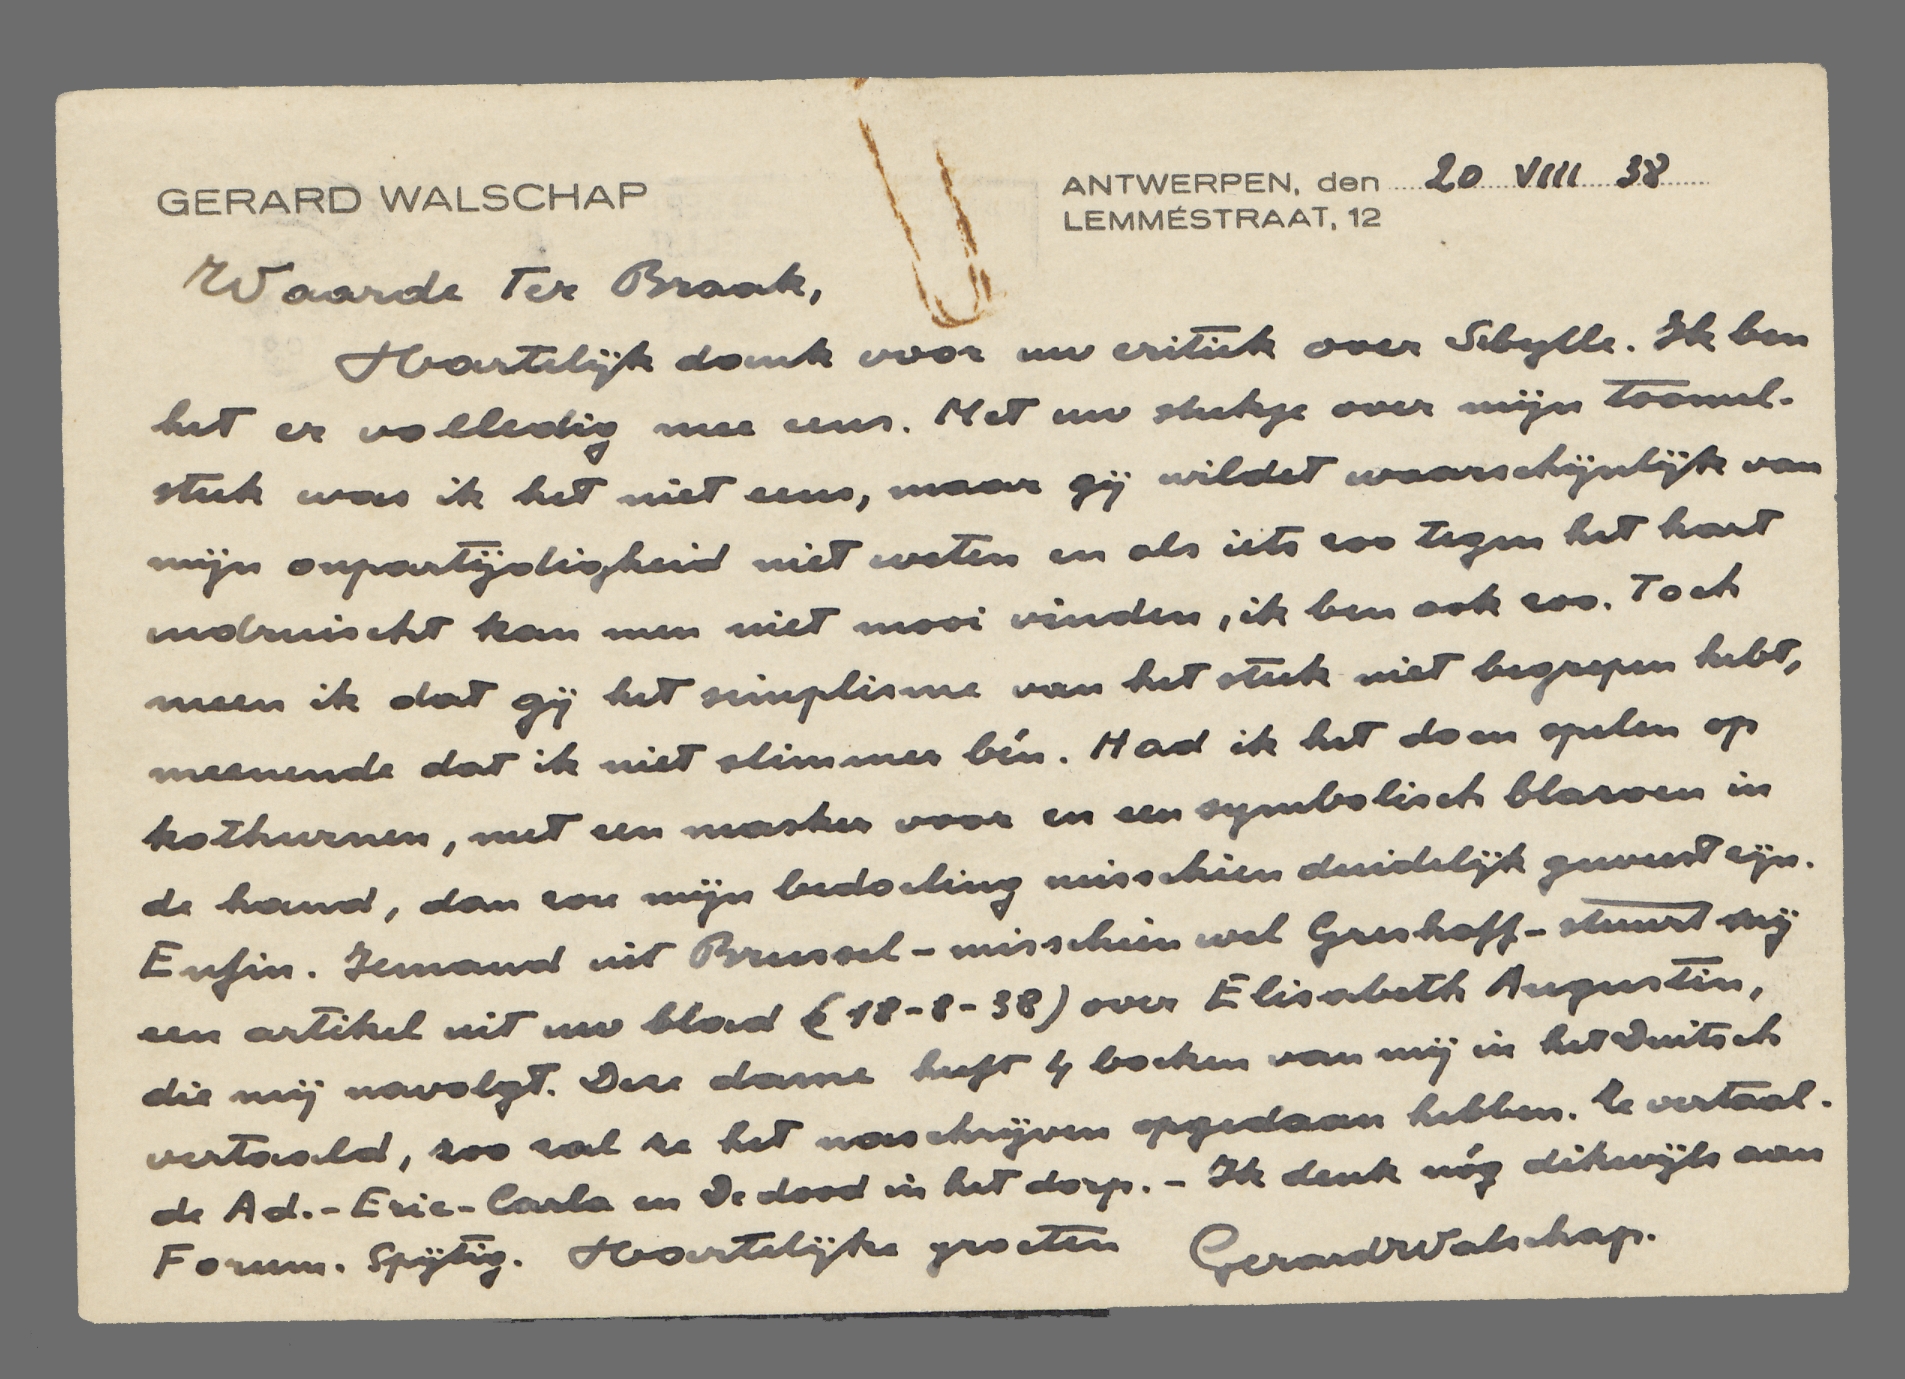 GERARD WALSCHAP
ANTWERPEN, den 20 VIII 38
LEMMÉSTRAAT, 12
Waarde Ter Braak,
Hartelijk dank voor uw critiek over Sibylle. Ik ben
het er volledig mee eens. Met uw stukje over mijn tooneel-
stuk was ik het niet eens, maar gij wildet waarschijnlijk van
mijn onpartijdigheid niet weten en als iets zoo tegen het hart
indruischt kan men niet mooi vinden, ik ben ook zoo. Toch
meen ik dat gij het simplisme van het stuk niet begrepen hebt,
meenende dat ik niet slimmer bén. Had ik het doen spelen op
kothurnen, met een masker voor en een symbolisch blazoen in
de hand, dan zou mijn bedoeling misschien duidelijk geweest zijn.
Enfin. Iemand uit Brussel - misschien wel Greshoff - stuurt mij
een artikel uit uw blad (18-8-38) over Elisabeth Augustin,
die mij navolgt. Deze dame heeft 4 boeken van mij in het Duitsch
vertaald, zoo zal ze het naschrijven opgedaan hebben. Ze vertaal-
de Ad.- Eric- Carla en De dood in het dorp. - Ik denk nóg dikwijls aan
Forum. Spijtig. Hartelijke groeten Gerard Walschap.